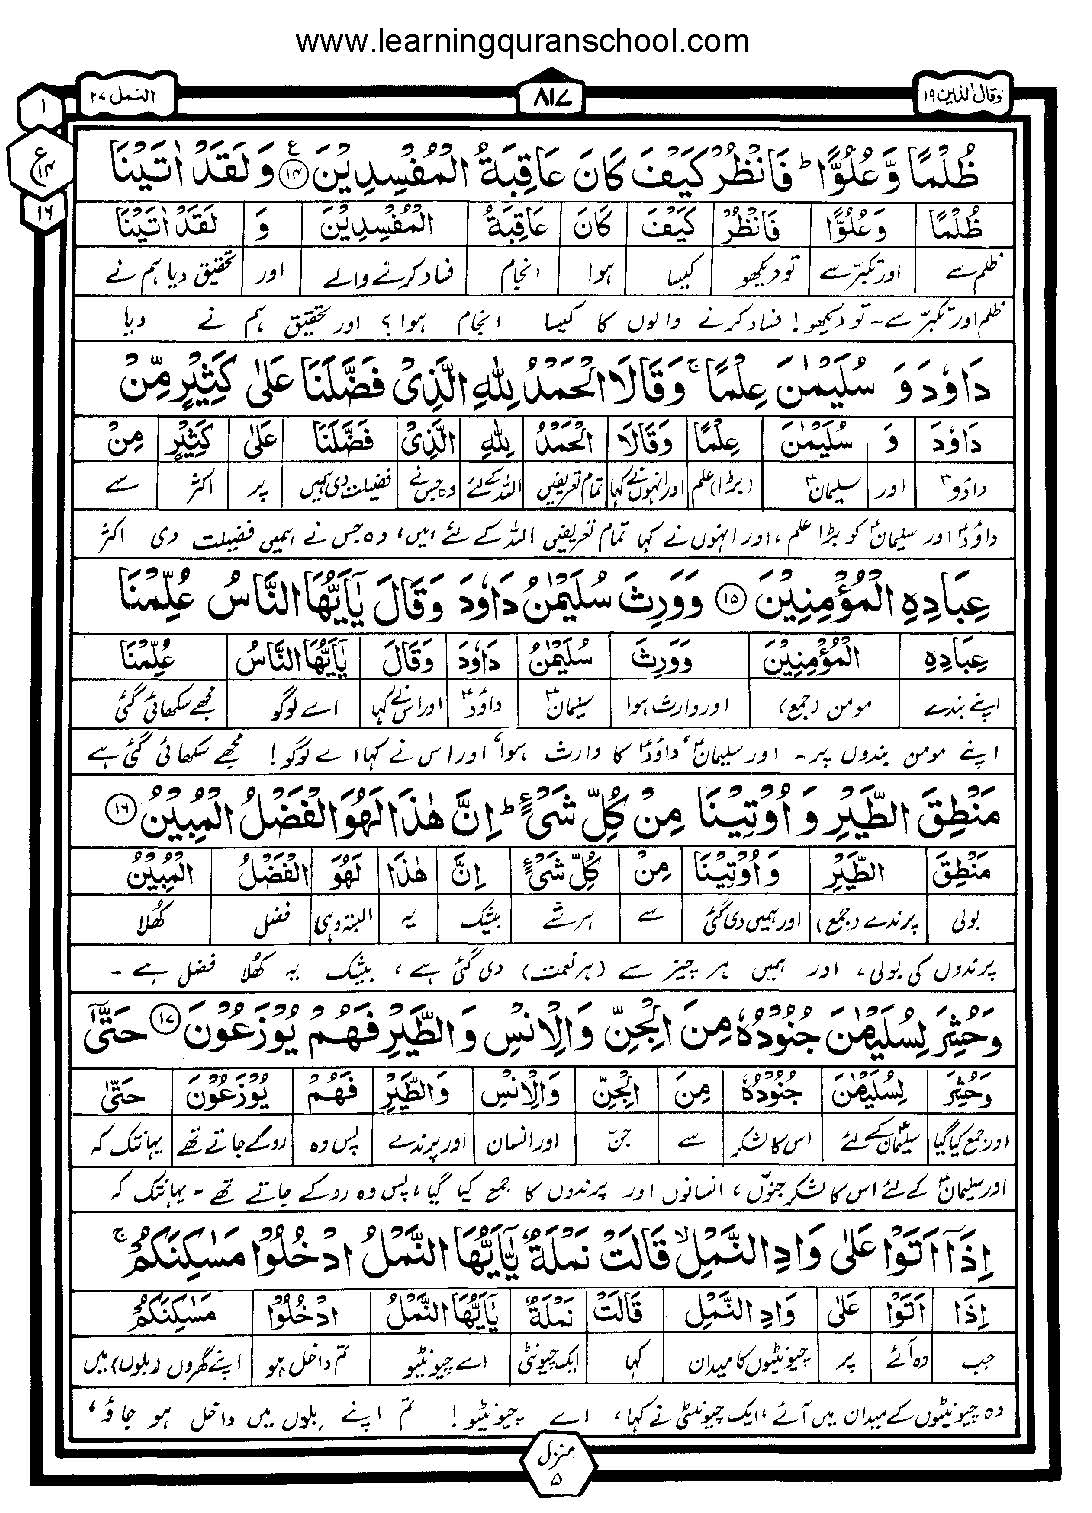 www.learningquranschool.com
وقال الذین ۱۹
۸۱۷
النمل ۲۷
۱
ع
۱۴
۱۶
ظُلْمًا وَّعُلُوًّا ؕ فَانْظُرْ كَیْفَ كَانَ عَاقِبَةُ الْمُفْسِدِیْنَ ۝۱۴ وَ لَقَدْ اٰتَیْنَا
ظُلْمًا وَعُلُوًّا فَانْظُرْ كَیْفَ كَانَ عَاقِبَةُ الْمُفْسِدِیْنَ وَ لَقَدْ اٰتَیْنَا
ظلم سے اور تکبّر سے تو دیکھو کیسا ہوا انجام فساد کرنے والے اور تحقیق دیا ہم نے
ظلم اور تکبّر سے۔ تو دیکھو! فساد کرنے والوں کا کیسا انجام ہوا؟ اور تحقیق ہم نے دیا
دَاوٗدَ وَ سُلَیْمٰنَ عِلْمًا ۚ وَقَالَا الْحَمْدُ لِلّٰهِ الَّذِیْ فَضَّلَنَا عَلٰی كَثِیْرٍ مِّنْ
دَاوٗدَ وَ سُلَیْمٰنَ عِلْمًا وَقَالَا الْحَمْدُ لِلّٰهِ الَّذِیْ فَضَّلَنَا عَلٰی كَثِیْرٍ مِنْ
داوٗدؑ اور سلیمانؑ (بڑا) علم اور انہوں نے کہا تمام تعریفیں اللہ کے لئے وہ جس نے فضیلت دی ہمیں پر اکثر سے
داوٗدؑ اور سلیمانؑ کو بڑا علم، اور انہوں نے کہا تمام تعریفیں اللہ کے لئے ہیں، وہ جس نے ہمیں فضیلت دی اکثر
عِبَادِهِ الْمُؤْمِنِیْنَ ۝۱۵ وَوَرِثَ سُلَیْمٰنُ دَاوٗدَ وَقَالَ یٰۤاَیُّهَا النَّاسُ عُلِّمْنَا
عِبَادِهِ الْمُؤْمِنِیْنَ وَوَرِثَ سُلَیْمٰنُ دَاوٗدَ وَقَالَ یٰۤاَیُّهَا النَّاسُ عُلِّمْنَا
اپنے بندے مومن (جمع) اور وارث ہوا سلیمانؑ داوٗدؑ اور اس نے کہا اے لوگو مجھے سکھائی گئی
اپنے مومن بندوں پر۔ اور سلیمانؑ داوٗدؑ کا وارث ہوا، اور اس نے کہا اے لوگو! مجھے سکھائی گئی ہے
مَنْطِقَ الطَّیْرِ وَ اُوْتِیْنَا مِنْ كُلِّ شَیْءٍ ؕ اِنَّ هٰذَا لَهُوَ الْفَضْلُ الْمُبِیْنُ ۝۱۶
مَنْطِقَ الطَّیْرِ وَ اُوْتِیْنَا مِنْ كُلِّ شَیْءٍ اِنَّ هٰذَا لَهُوَ الْفَضْلُ الْمُبِیْنُ
بولی پرندے (جمع) اور ہمیں دی گئی سے ہر شے بیشک یہ البتہ وہی فضل کھُلا
پرندوں کی بولی، اور ہمیں ہر چیز سے (ہر نعمت) دی گئی ہے، بیشک یہ کھُلا فضل ہے۔
وَحُشِرَ لِسُلَیْمٰنَ جُنُوْدُهٗ مِنَ الْجِنِّ وَالْاِنْسِ وَ الطَّیْرِ فَهُمْ یُوْزَعُوْنَ ۝۱۷ حَتّٰۤی
وَحُشِرَ لِسُلَیْمٰنَ جُنُوْدُهٗ مِنَ الْجِنِّ وَالْاِنْسِ وَالطَّیْرِ فَهُمْ یُوْزَعُوْنَ حَتّٰی
اور جمع کیا گیا سلیمانؑ کے لئے اس کا لشکر سے جنّ اور انسان اور پرندے پس وہ روکے جاتے تھے یہانتک کہ
اور سلیمانؑ کے لئے اس کا لشکر جنّوں، انسانوں اور پرندوں کا جمع کیا گیا، پس وہ روکے جاتے تھے۔ یہانتک کہ
اِذَاۤ اَتَوْا عَلٰی وَادِ النَّمْلِ ۙ قَالَتْ نَمْلَةٌ یّٰۤاَیُّهَا النَّمْلُ ادْخُلُوْا مَسٰكِنَكُمْ ۚ
اِذَا اَتَوْا عَلٰی وَادِ النَّمْلِ قَالَتْ نَمْلَةٌ یٰۤاَیُّهَا النَّمْلُ ادْخُلُوْا مَسٰكِنَكُمْ
جب وہ آئے پر چیونٹیوں کا میدان کہا ایک چیونٹی اے چیونٹیو تم داخل ہو اپنے گھروں (بلوں) میں
وہ چیونٹیوں کے میدان میں آئے، ایک چیونٹی نے کہا، اے چیونٹیو! تم اپنے بلوں میں داخل ہو جاؤ،
منزل
۵